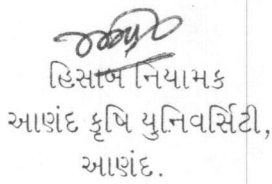 હિસાબ નિયામક
આણંદ કૃષિ યુનિવર્સિટી,
આણંદ.